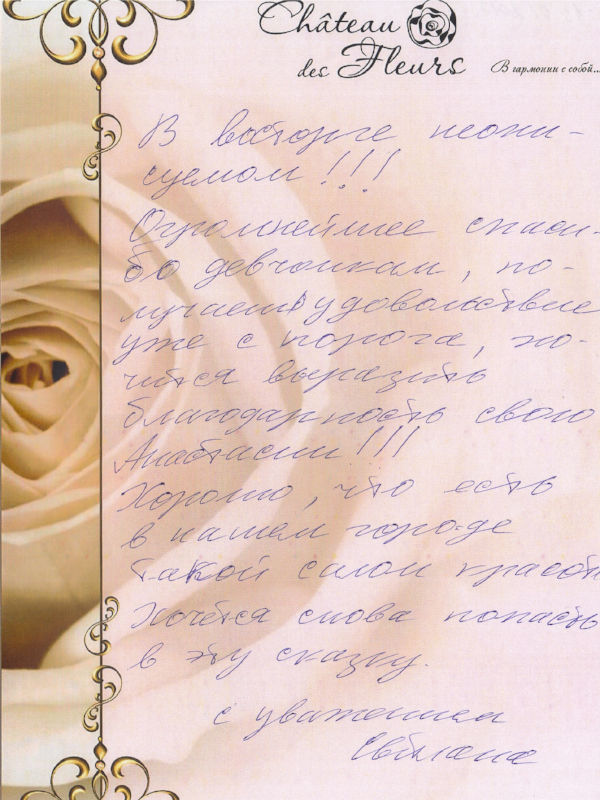 Château
des Fleurs
В гармонии с собой...
В восторге неопи-
суемом!!!
Огромнейшее спаси-
бо девчонкам, по-
лучаешь удовольствие
уже с порога, хо-
чится выразить
благодарность свою
Анастасии!!!
Хорошо, что есть
в нашем городе
такой салон красоты
Хочется снова попасть
в эту сказку.
с уважением
Светлана